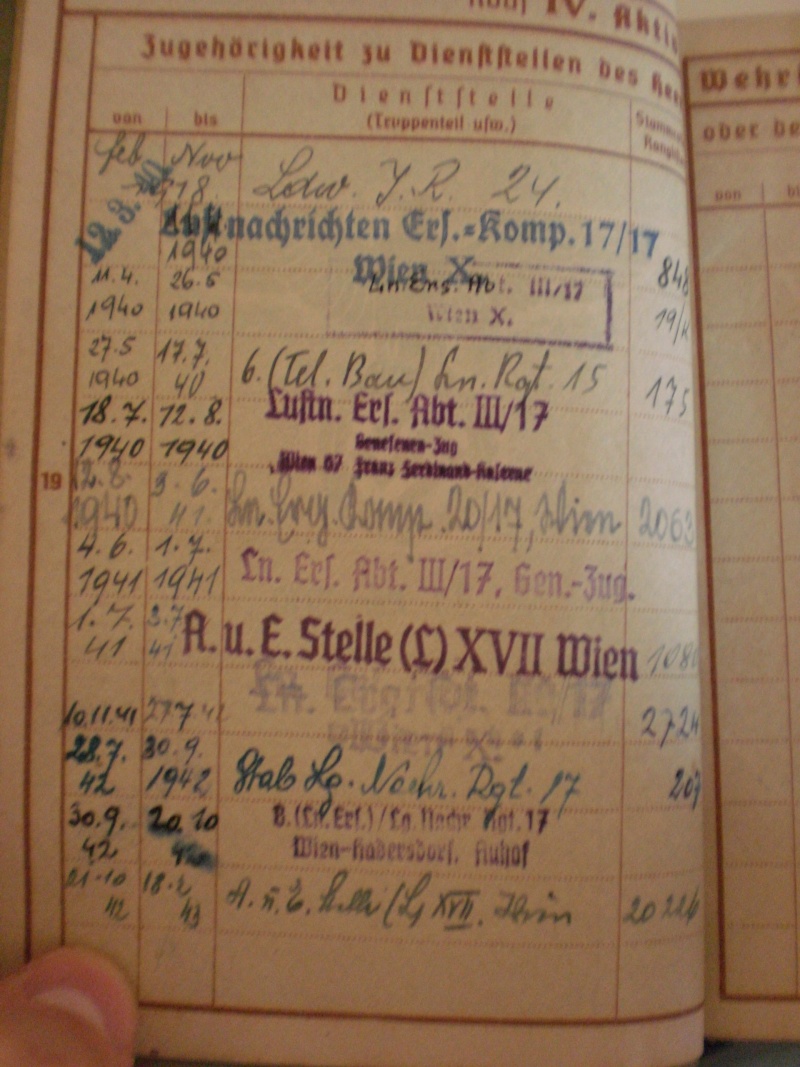 IV. Akti
Zugehörigkeit zu Dienststellen des Hee
Dienststelle
(Truppenteil usw.)
von bis
Stamm
Rangl
Wehr
ober be
von bi
feb Nov
18. Ldw. I. R. 24.
12.3.40
Luftnachrichten Ers.-Komp. 17/17
1940
Wien X. 848
11.4. 26.5 Ln. Ers. Abt. III/17
1940 1940 Wien X. 19/
27.5 17.7.
1940 40 6. (Tel. Bau) Ln. Rgt. 15 175
18.7. 12.8. Luftn. Ers. Abt. III/17
1940 1940 Genesenen-Zug
Wien 67 Franz Ferdinand-Kaserne
19
12.8. 3.6.
1940 41. Ln. Komp. 20/17, Wien 2063
4.6. 1.7.
1941 1941 Ln. Ers. Abt. III/17, Gen.-Zug.
1.7. 3.7
41 41 A. u. E. Stelle (L) XVII Wien 108
10.11.41 27.7.42 Ln. /17 2724
Wien X.
28.7. 30.9.
42 1942 Stab Lg. Nachr. Rgt. 17 207
30.9. 20.10 8. (Ln. Ers.) / Lg. Nachr. Rgt. 17
42 42 Wien-Hadersdorf, Auhof
21.10 18.2
42 43 A. u. E. Stelle (L) XVII. Wien 2022/4